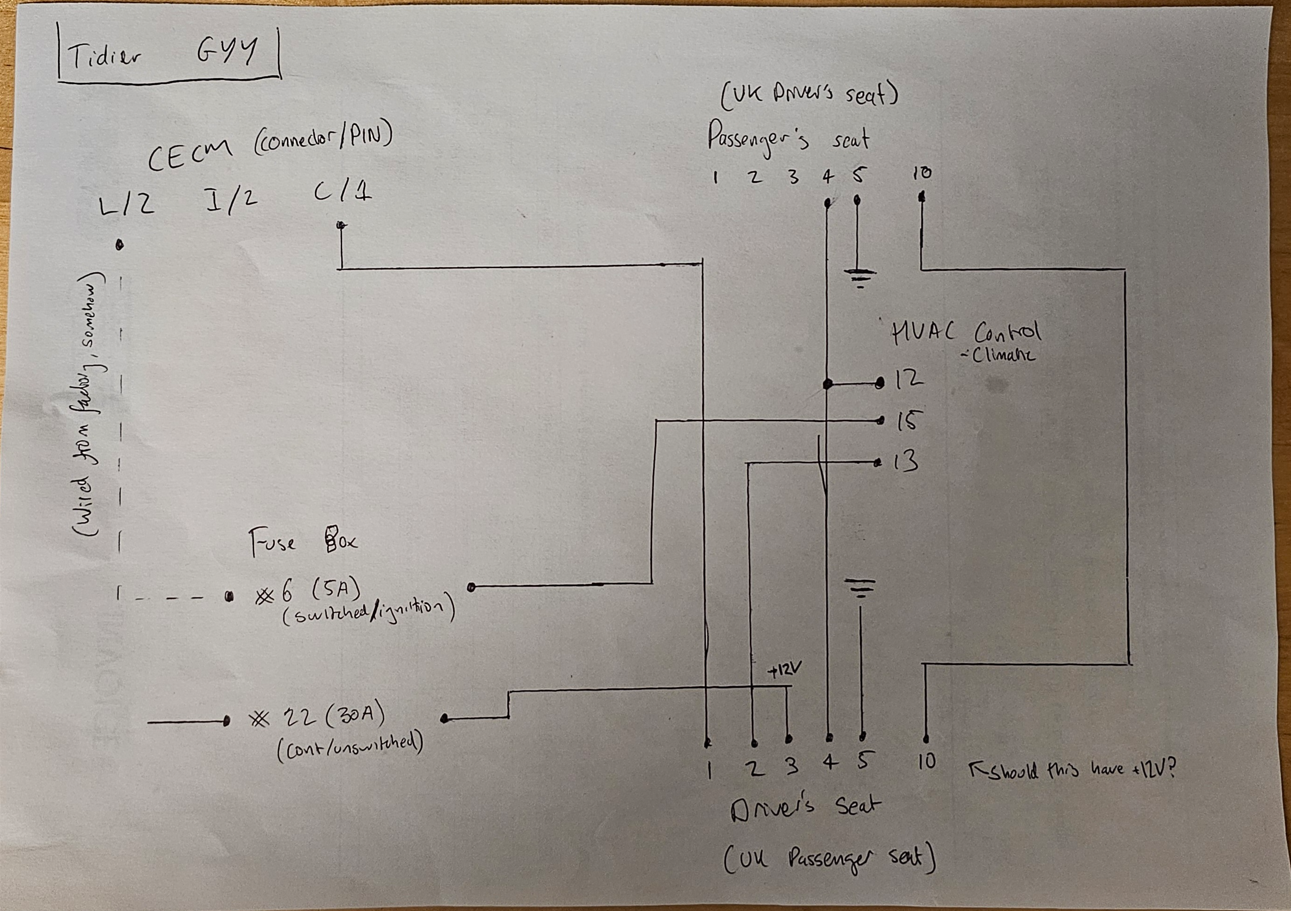 Tidier GYY
CECM (connector/PIN)
L/2 I/2 C/1
(UK Driver's seat)
Passenger's seat
1 2 3 4 5 10
HVAC Control
- Climatic
12
15
13
(Wired from factory, somehow)
Fuse Box
※6 (5A)
(switched/ignition)
※ 22 (30A)
(cont/unswitched)
+12V
1 2 3 4 5 10
↖ should this have +12V?
Driver's Seat
(UK Passenger seat)